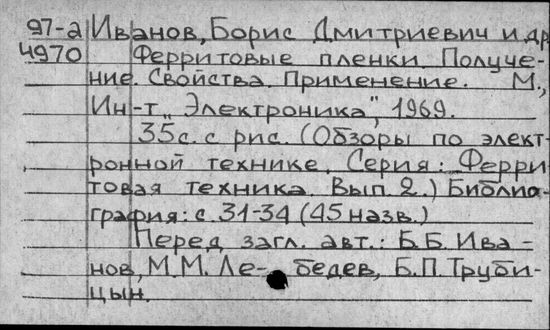 97-2 Иванов, Борис Дмитриевич и др
4970 Ферритовые пленки. Получе-
ние. Свойства. Применение. М.,
Ин-т „Электроника", 1969.
35с. с рис. (Обзоры по элект-
ронной технике. Серия: Ферри
товая техника. Вып. 2.) Библио-
графия: с. 31-34 (45 назв.)
Перед загл. авт.: Б.Б. Ива-
нов, М.М. Ле- бедев, Б.П. Труби-
цын.